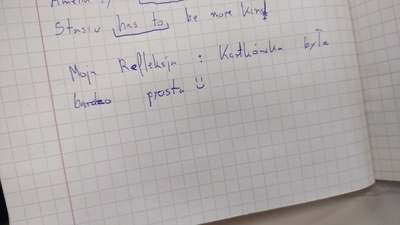 Stasiu has to, be more kind
Moja Refleksja : Kartkówka była
bardzo prosta